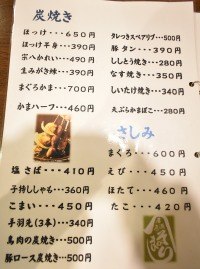 炭焼き
ほっけ・・・650円
ほっけ半身・・・390円
宗八かれい・・・490円
生みがき鰊・・・390円
まぐろかま・・・700円
かまハーフ・・・460円
塩さば・・・410円
子持ししゃも・・・360円
こまい・・・450円
手羽先(3本)・・・340円
鳥肉の炭焼き・・・500円
豚ロース炭焼き・・・500円
タレつきスペアリブ・・・500円
豚タン・・・390円
ししとう焼き・・・280円
なす焼き・・・350円
しいたけ焼き・・・340円
天ぷらかまぼこ・・・280円
さしみ
まぐろ・・・600円
えび・・・450円
ほたて・・・460円
たこ・・・420円